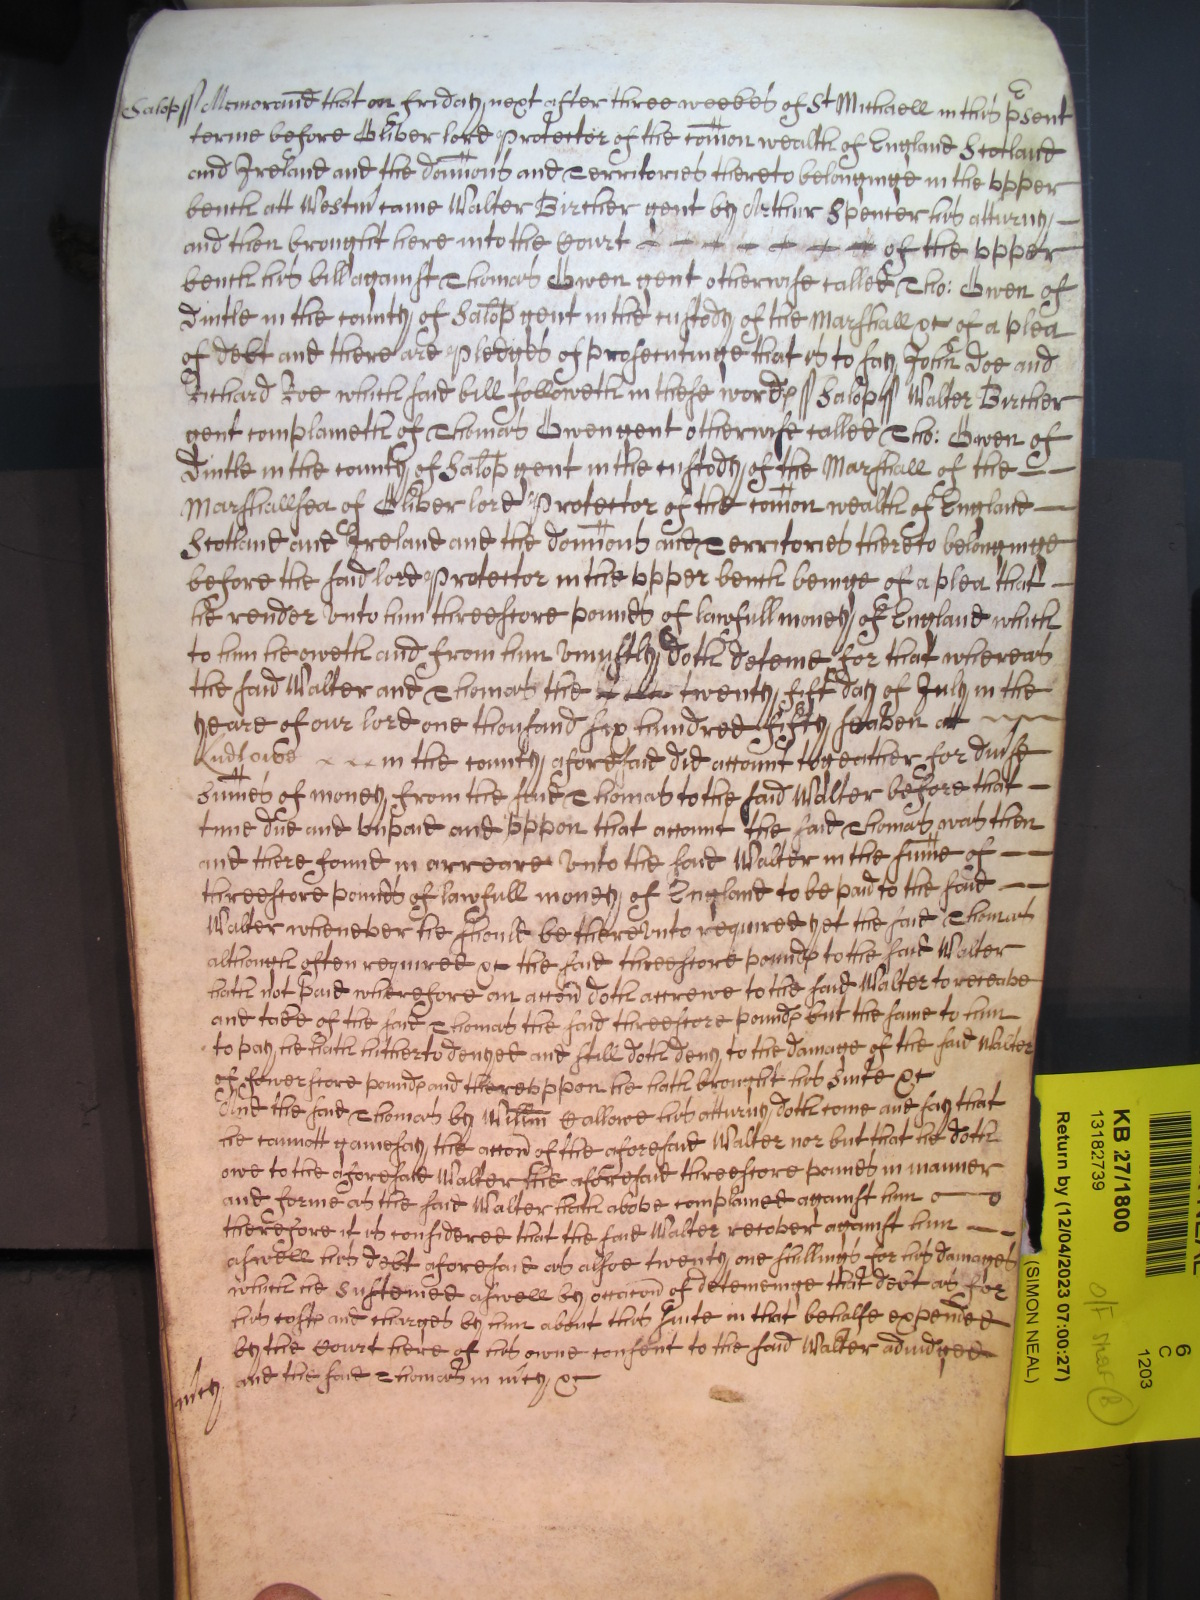 Salop// Memorand that on Friday next after three weekes of St Michaell in this psent
terme before Oliver lord Protector of the comon wealth of England Scotland
and Ireland and the domions and Territories thereto belonginge in the vpper
bench att Westm came Walter Bircher gent by Arthur Spencer his atturny —
and then brought here into the Court — — — — — of the vpper
bench his bill against Thomas Owen gent otherwise called Tho: Owen of
Dintle in the county of Salop gent in the custody of the Marshall &c of a plea
of debt and there are Pledges of prosecutinge that is to say John Doe and
Richard Roe which said bill followeth in these words// Salop// Walter Bircher
gent complaineth of Thomas Owen gent otherwise called Tho: Owen of
Dintle in the county of Salop gent in the custody of the Marshall of the —
Marshallsea of Oliver lord Protector of the comon wealth of England —
Scotland and Ireland and the domions and Territories thereto belonginge
before the said lord Protector in the vpper bench beinge of a plea that —
he render vnto him threescore pounds of lawfull money of England which
to him he oweth and from him vniustly doth deteine for that whereas
the said Walter and Thomas the twenty fift day of July in the
yeare of our lord one thousand six hundred fifty seaven att
Ludlowe in the county aforesaid did account togeather for divse
sumes of money from the said Thomas to the said Walter before that —
time due and vnpaid and vppon that account the said Thomas was then
and there found in arreare vnto the said Walter in the sume of —
threescore pounds of lawfull money of England to be paid to the said —
Walter whenever he should be therevnto required yet the said Thomas
although often required &c the said threescore pounds to the said Walter
hath not paid wherefore an accon doth accrewe to the said Walter to receave
and take of the said Thomas the said threescore pounds but the same to him
to pay he hath hitherto denyed and still doth deny to the damage of the said Walter
of fowerscore pounds and therevppon he hath brought his Suite &c
And the said Thomas by Willm Callowe his atturny doth come and say that
he cannott gainesay the accon of the aforesaid Walter nor but that he doth
owe to the aforesaid Walter the aforesaid threescore pounds in manner
and forme as the said Walter hath above complained against him —
therefore it is considered that the said Walter recover against him —
aswell his debt aforesaid as alsoe twenty one shillings for his damages
which he Susteined aswell by occacon of deteineinge that debt as for
his costs and charges by him about his suite in that behalfe expended
by the Court here of his owne consent to the said Walter adiudged
mcy and the said Thomas in mcy &c
KB 27/1800
13182739
Return by (12/04/2023 07:00:27)
(SIMON NEAL)
6
C
1203